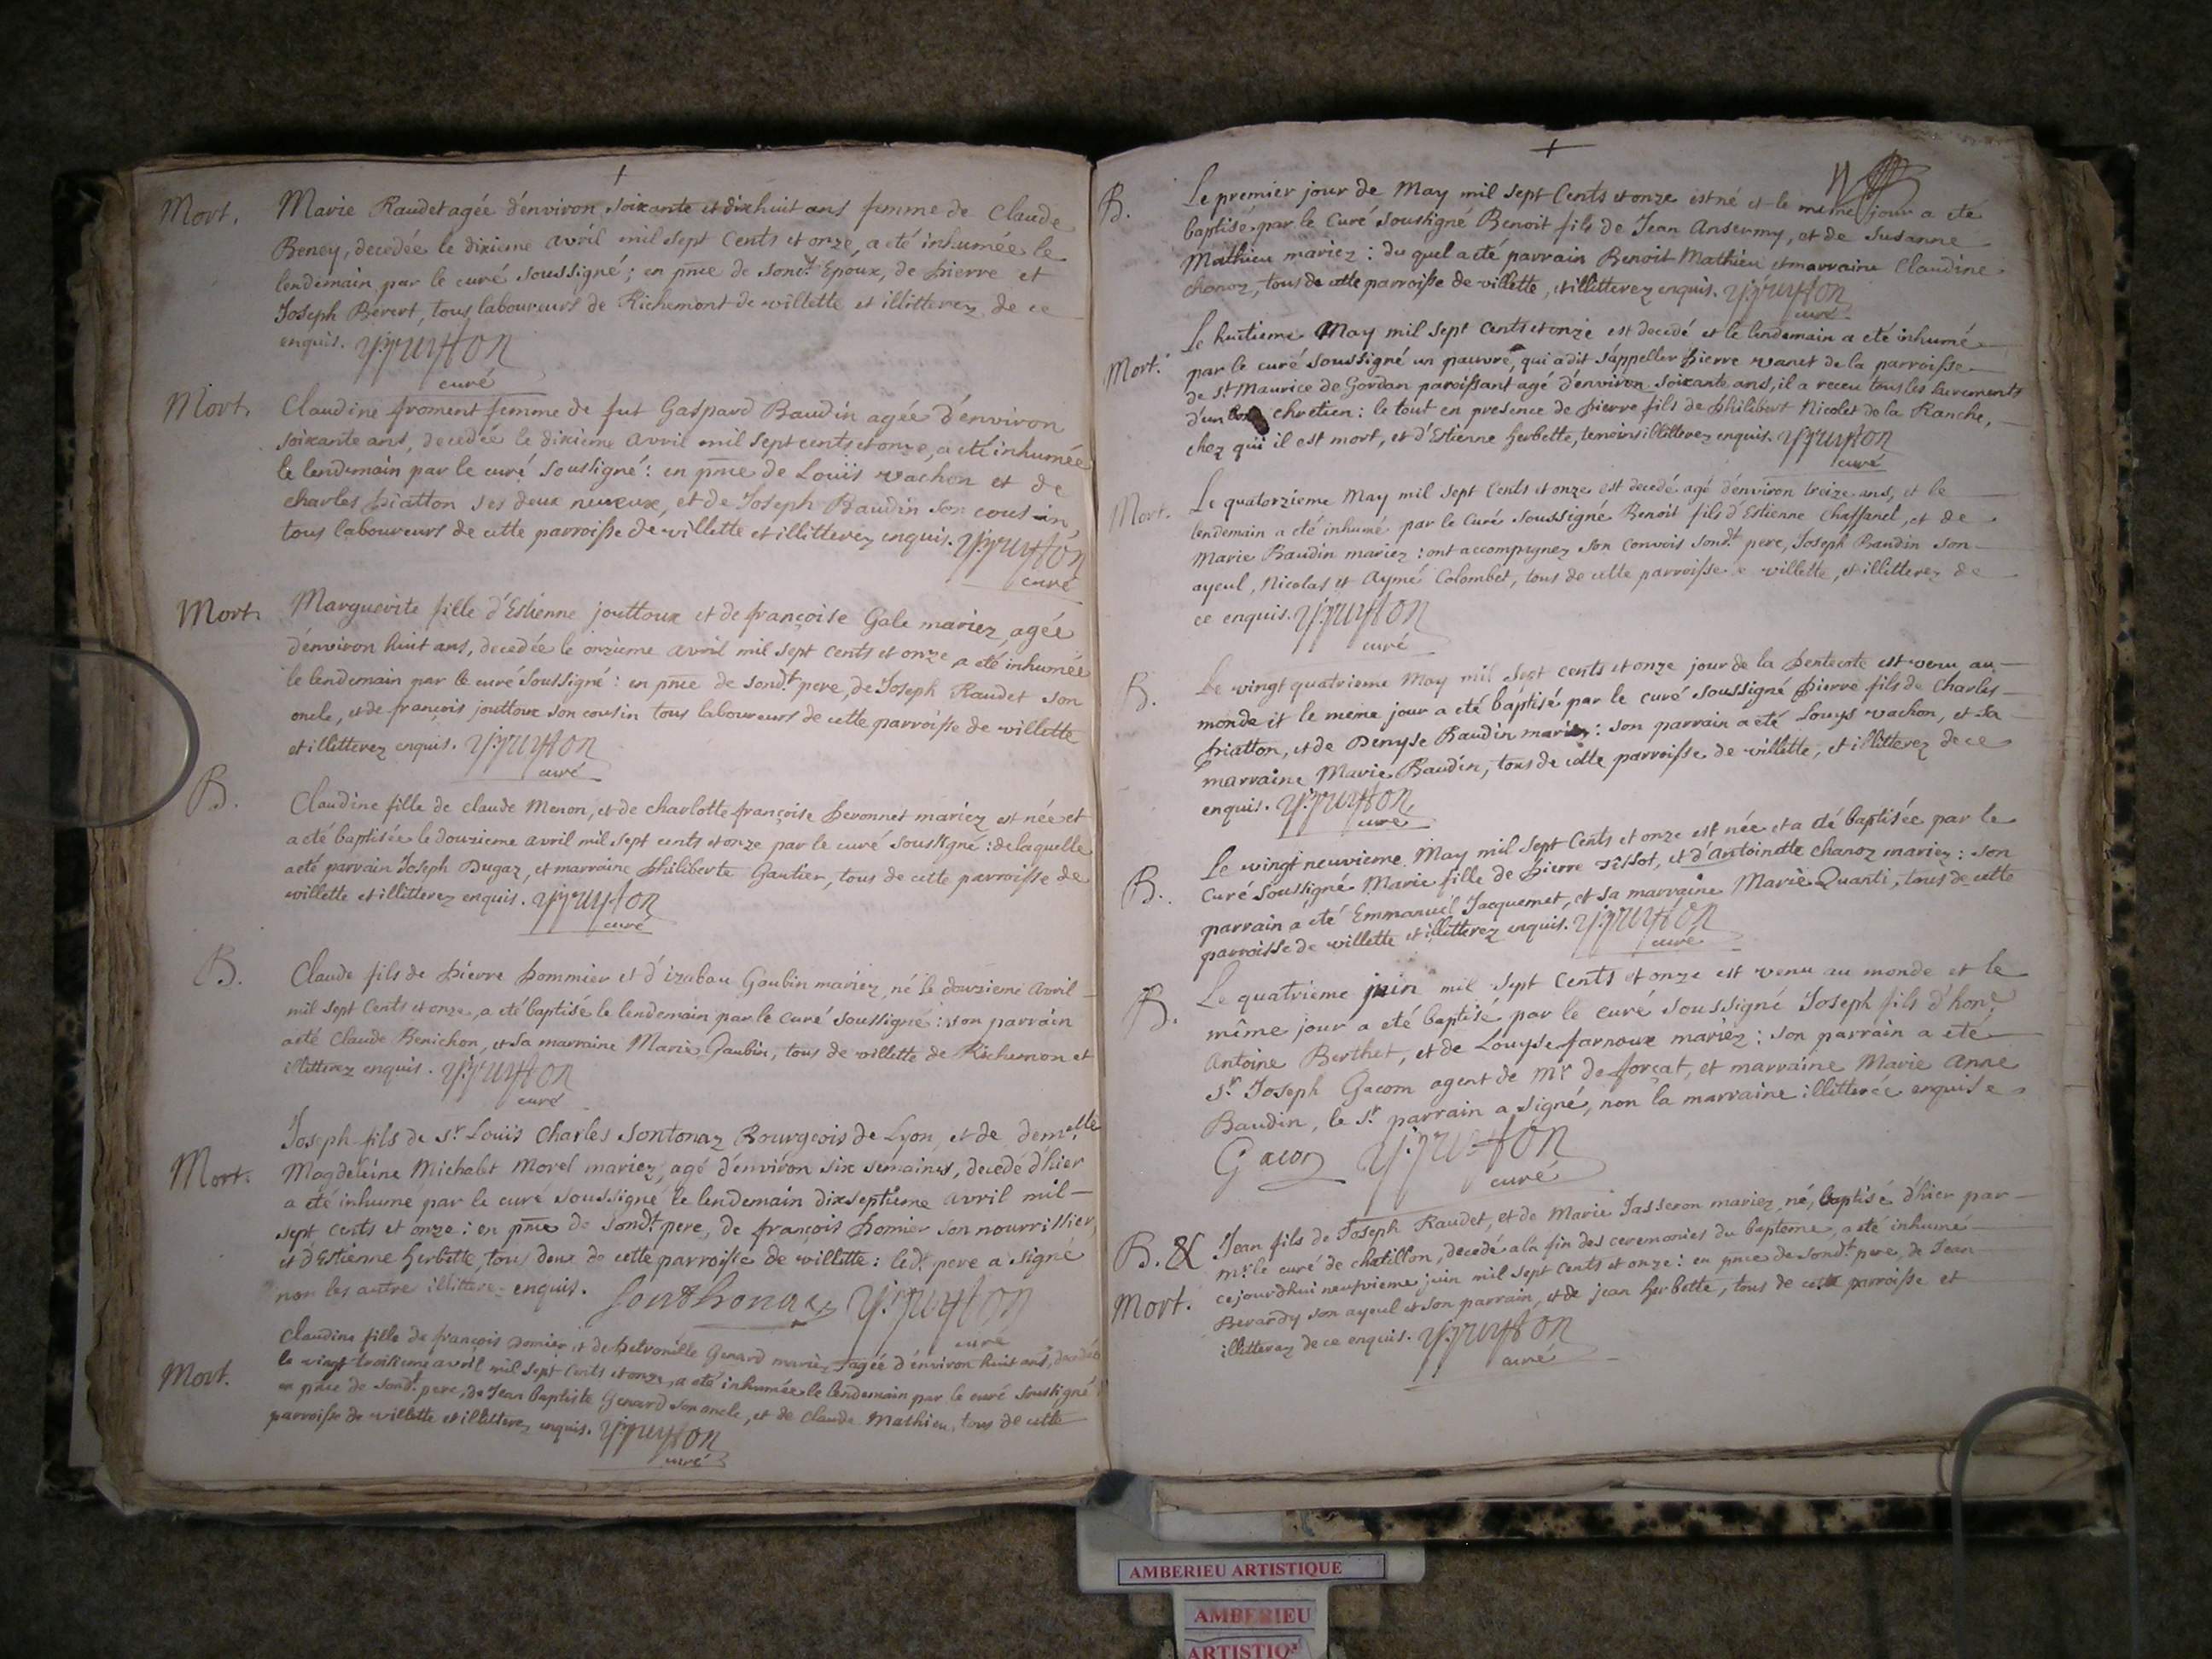 Mort. Marie Raudet agée d'environ soixante et dixhuit ans femme de Claude
Beney, decedée le dixieme avril mil sept Cents et onze, a eté inhumée le
lendemain par le curé soussigné; en pnce de sond.t Epoux, de pierre et
Joseph Berert, tous laboureurs de Richemont de villette et illitterez de ce
enquis.
curé
Mort. Claudine froment femme de fut Gaspard Baudin agée d'environ
soixante ans, decedée le dixieme avril mil sept cents et onze, a eté inhumée
le lendemain par le curé soussigné: en pnce de Louïs vachon et de
charles piatton ses deux neveux, et de Joseph Baudin son cousin,
tous laboureurs de cette parroisse de villette et illitterez enquis.
curé
Mort. Marguerite fille d'Estienne jouttoux et de françoise Gale mariez, agée
d'environ huit ans, decedée le onzieme avril mil sept cents et onze a eté inhumée
le lendemain par le curé soussigné: en pnce de sond.t pere, de Joseph Raudet son
oncle, et de françois jouttoux son cousin tous laboureurs de cette parroisse de villette
et illitterez enquis.
curé
B. Claudine fille de claude Menon, et de charlotte françoise peronnet mariez est née et
a eté baptisée le douzieme avril mil sept cents et onze par le curé soussigné: de laquelle
a eté parrain Joseph Dugaz, et marraine philiberte Gautier, tous de cette parroisse de
villette et illitterez enquis.
curé
B. Claude fils de pierre pommier et d'izabau Goubin mariez, né le douzieme avril
mil sept Cents et onze, a eté baptisé le lendemain par le curé soussigné: son parrain
a eté Claude Benichon, et sa marraine Marie Goubin, tous de villette de Richemon et
illitterez enquis.
curé
Mort. Joseph fils de s.r Louïs Charles Sontonaz Bourgeois de Lyon, et de dem.elle
Magdeleine Michalet Morel mariez, agé d'environ six semaines, decedé d'hier
a eté inhumé par le curé soussigné le lendemain dixseptieme avril mil
sept cents et onze: en pnce de sond.t pere, de françois pomier son nourrissier,
et d'Estienne herbette, tous deux de cette parroisse de villette: led.t pere a signé
non les autre illittere enquis. Sonthonaz
curé
Mort. Claudine fille de françois pomier et de petronille Genard mariez, agée d'environ huit ans, decedée
le vingt troisieme avril mil sept Cents et onze, a eté inhumée le lendemain par le curé soussigné
en pnce de sond.t pere, de Jean baptiste Genard son oncle, et de Claude Mathieu, tous de cette
parroisse de villette et illitterez enquis.
curé
B. Le premier jour de May mil sept Cents et onze est né et le même jour a eté
baptisé par le Curé soussigné Benoit fils de Jean Ansermy, et de Susanne
Mathieu mariez: du quel a eté parrain Benoit Mathieu et marraine Claudine
chanoz, tous de cette parroisse de villette, et illitterez enquis.
curé
Mort. Le huitieme May mil sept Cents et onze est decedé et le lendemain a eté inhumé
par le curé soussigné un pauvre, qui a dit s'appeller pierre vanet de la parroisse
de S.t Maurice de Gordan paroissant agé d'environ soixante ans, il a receu tous les sacrements
d'un bon chretien: le tout en presence de pierre fils de philibert Nicolet de la Ranche,
chez qui il est mort, et d'Estienne herbette, temoins illitterez enquis.
curé
Mort. Le quatorzieme May mil sept Cents et onze est decedé agé d'environ treize ans, et le
lendemain a eté inhumé par le Curé soussigné Benoit fils d'Estienne Chaffanel, et de
Marie Baudin mariez: ont accompagnez son convois sond.t pere, Joseph Baudin son
ayeul, Nicolas et Aymé Colombet, tous de cette parroisse de villette, et illitterez de
ce enquis.
curé
B. Le vingt quatrieme May mil sept cents et onze jour de la pentecote est venu au
monde et le meme jour a eté baptisé par le curé soussigné pierre fils de Charles
piatton, et de Denyse Baudin mariez: son parrain a eté Louys vachon, et sa
marraine Marie Baudin, tous de cette parroisse de villette, et illitterez de ce
enquis.
curé
B. Le vingt neuvieme May mil sept Cents et onze est née et a eté baptisée par le
Curé soussigné Marie fille de pierre Tissot, et d'Antoinette chanoz mariez: son
parrain a eté Emmanuel Jacquemet, et sa marraine Marie Quanti, tous de cette
parroisse de villette et illitterez enquis.
curé
B. Le quatrieme juin mil sept Cents et onze est venu au monde et le
même jour a eté baptisé par le curé soussigné Joseph fils d'hon.e
Antoine Berthet, et de Louyse farnoux mariez: son parrain a eté
S.r Joseph Gacom agent de M.r de forçat, et marraine Marie Anne
Baudin, le S.r parrain a signé, non la marraine illitterée enquise
Gacon
curé
B. & Mort. Jean fils de Joseph Raudet, et de Marie Jasseron mariez, né, baptisé d'hier par
M.r le curé de chatillon, decedé à la fin des ceremonies du bapteme, a eté inhumé
cejourdhui neufvieme juin mil sept Cents et onze: en pnce de sond.t pere, de Jean
Berardy son ayeul et son parrain, et de jean herbette, tous de cette parroisse et
illitterez de ce enquis.
curé
AMBERIEU ARTISTIQUE
AMBERIEU
ARTISTIQ